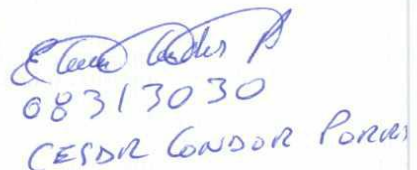 08313030
CESDR CONDOR PORRAS